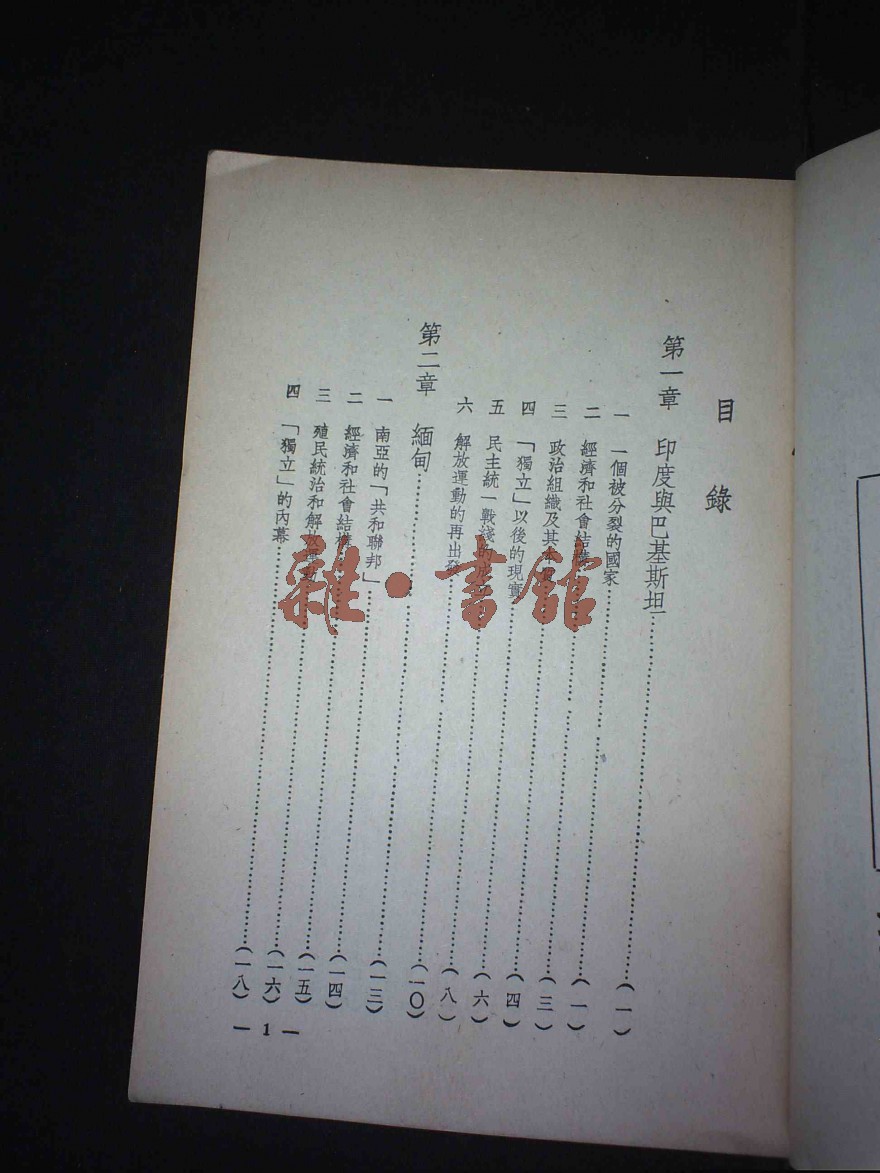 目錄
第一章 印度與巴基斯坦……(一)
一 一個被分裂的國家……(一)
二 經濟和社會結構……(三)
三 政治組織及其……(四)
四 「獨立」以後的現實……(六)
五 民主統一戰綫的……(八)
六 解放運動的再出發……(一〇)
第二章 緬甸……(一三)
一 南亞的「共和聯邦」……(一四)
二 經濟和社會結構……(一五)
三 殖民統治和解放運動……(一六)
四 「獨立」的內幕……(一八)
— 1 —
雜·書館